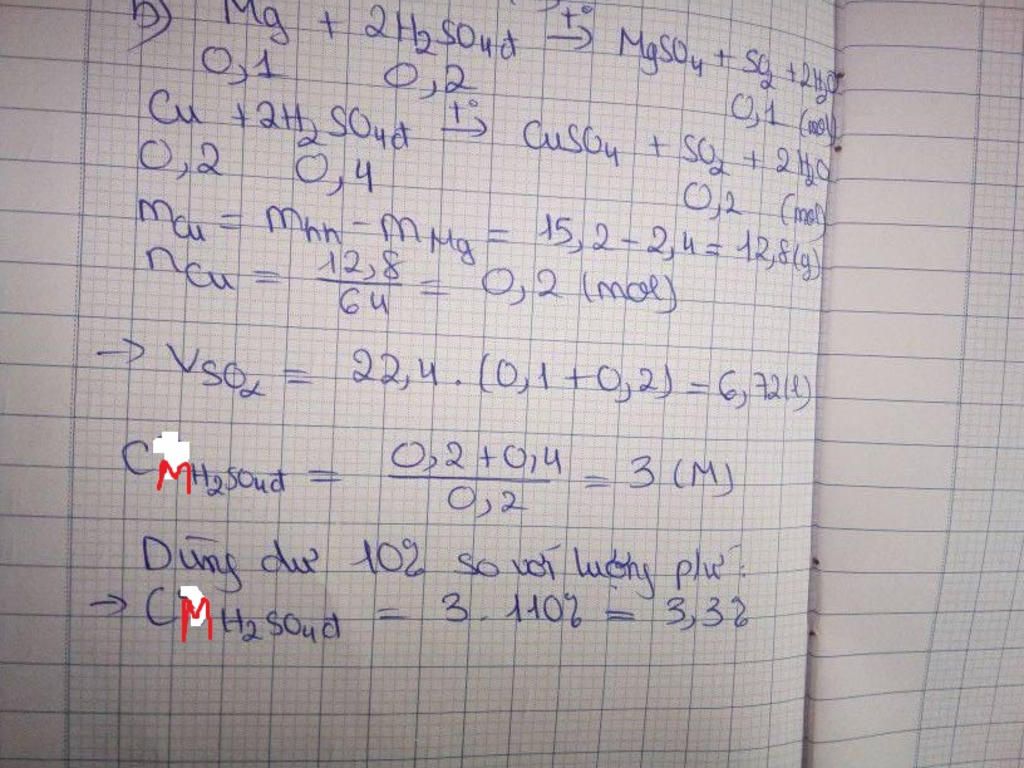 b) Mg + 2H₂SO₄đ →(t°) MgSO₄ + SO₂ + 2H₂O
0,1 0,2 0,1 (mol)
Cu + 2H₂SO₄đ →(t°) CuSO₄ + SO₂ + 2H₂O
0,2 0,4 0,2 (mol)
mCu = mhh - mMg = 15,2 - 2,4 = 12,8(g)
nCu = 12,8/64 = 0,2 (mol)
→ VSO₂ = 22,4 . (0,1 + 0,2) = 6,72(l)
CM H₂SO₄đ = (0,2 + 0,4)/0,2 = 3 (M)
Dùng dư 10% so với lượng p/ư:
→ CM H₂SO₄đ = 3 . 110% = 3,3%